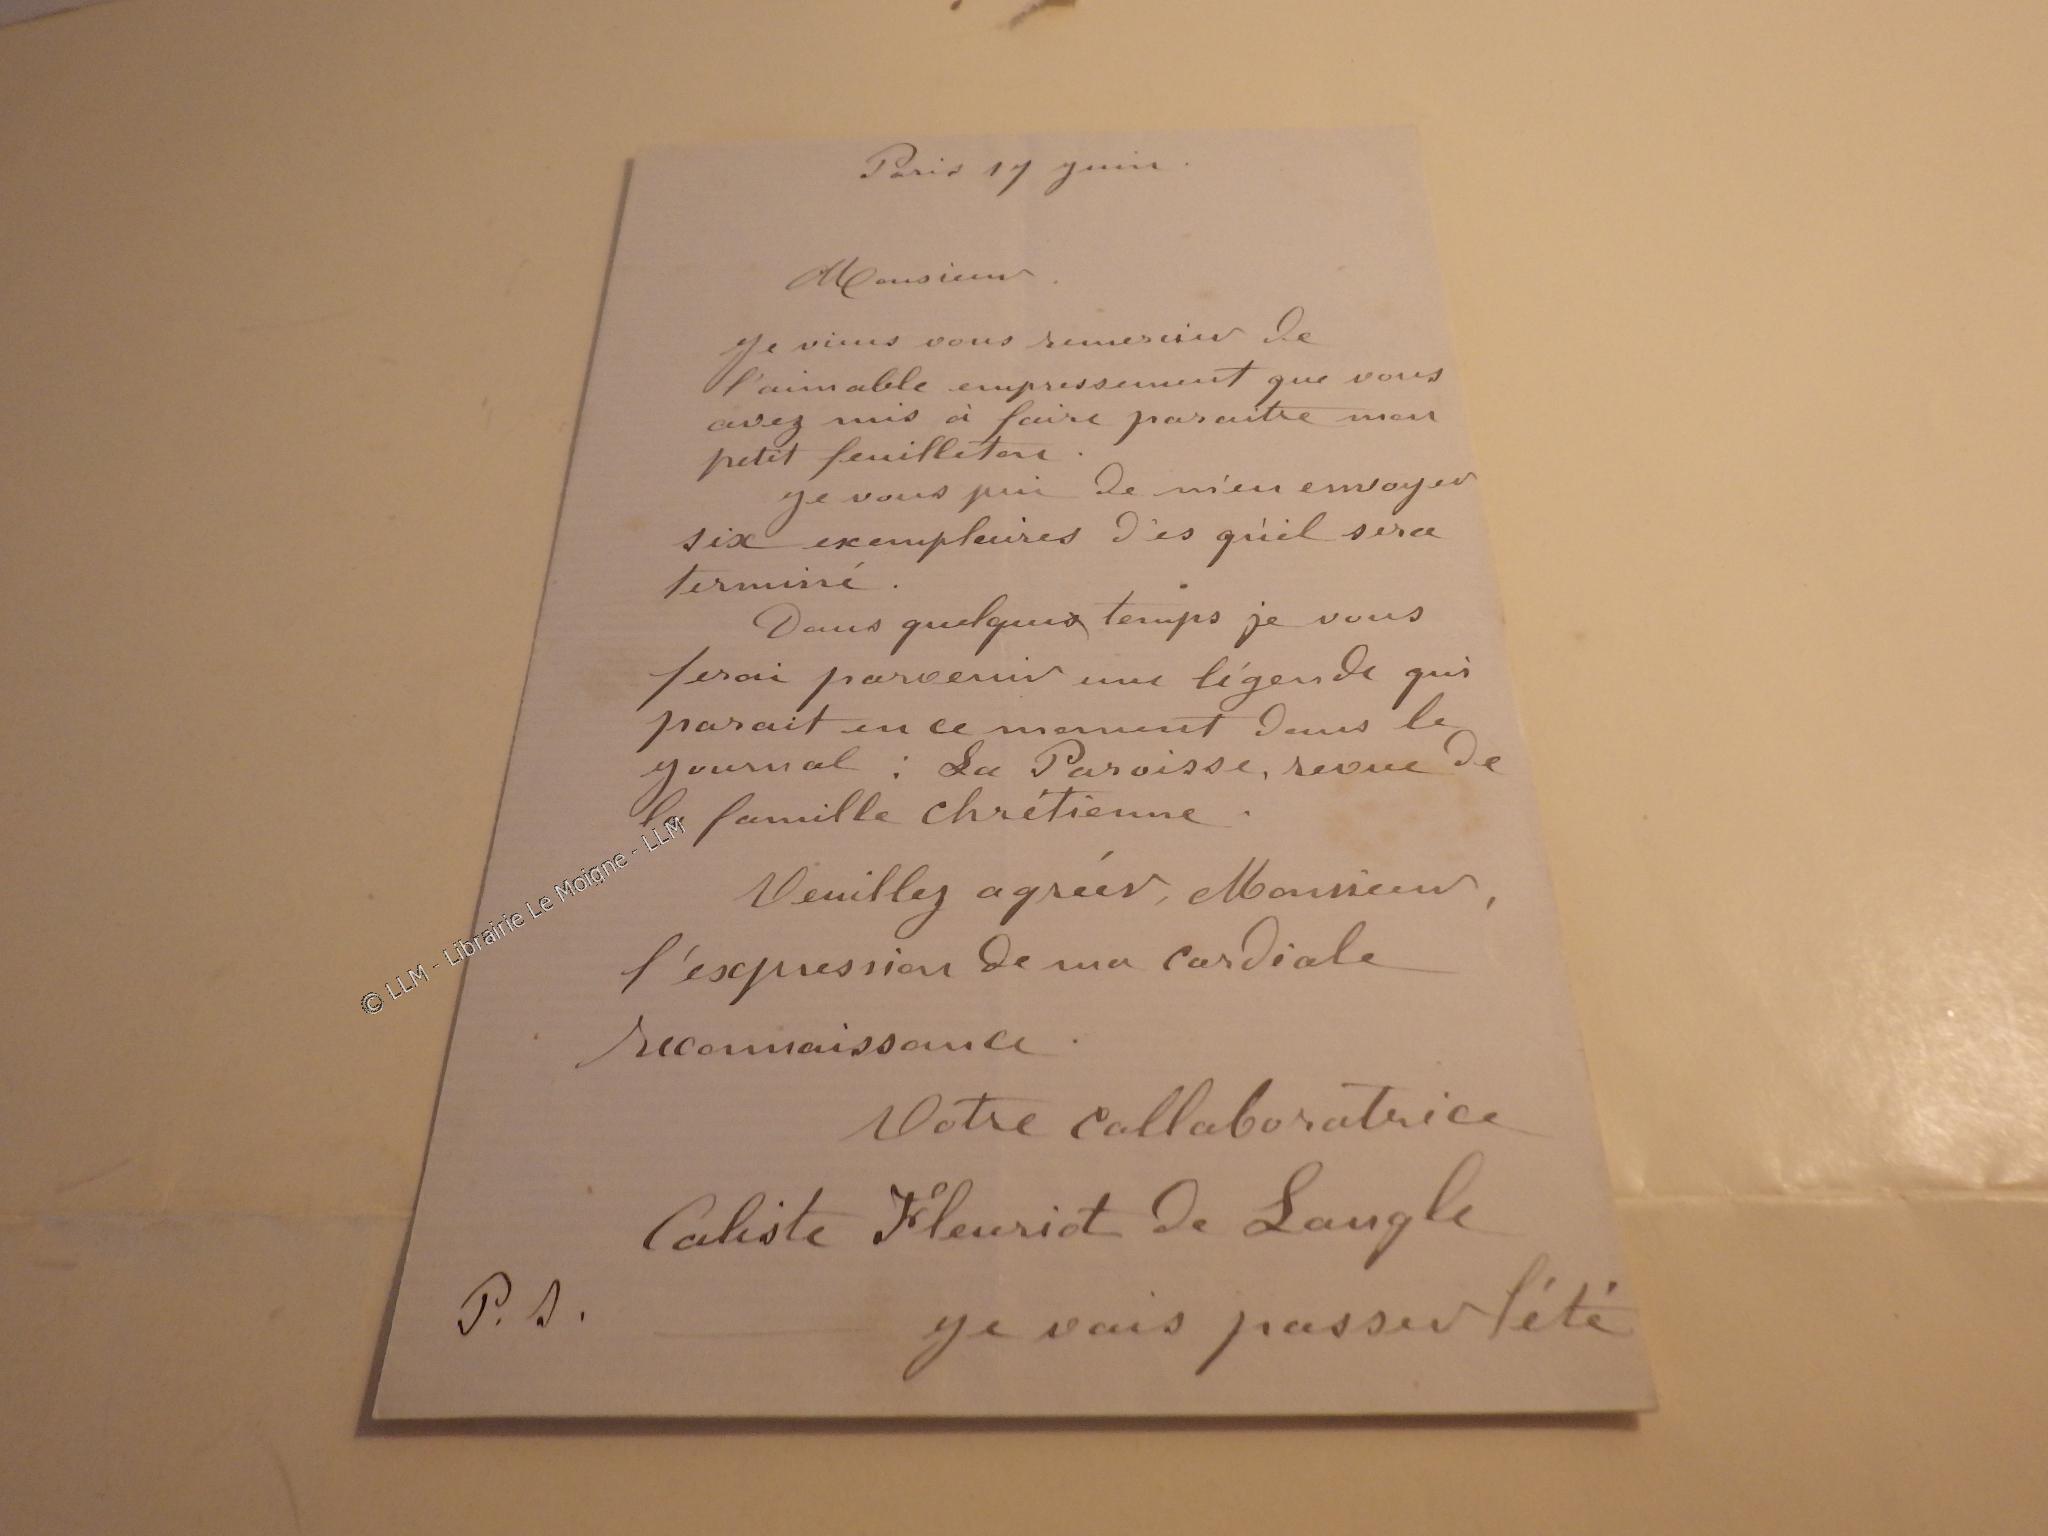 Paris 17 juin.
Monsieur.
Je viens vous remercier de
l'aimable empressement que vous
avez mis à faire paraitre mon
petit feuilleton.
Je vous prie de m'en envoyer
six exemplaires dès qu'il sera
terminé.
Dans quelques temps je vous
ferai parvenir une légende qui
parait en ce moment dans le
journal : La Paroisse, revue de
la famille chrétienne.
Veuillez agréer, Monsieur,
l'expression de ma cordiale
reconnaissance.
Votre collaboratrice
Caliste Fleuriot de Langle
P.S. Je vais passer l'été
© LLM - Librairie Le Moigne - LLM